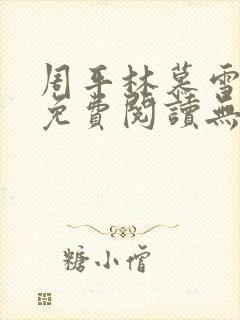 周平林慕雪
免費閱讀無
糖小僧